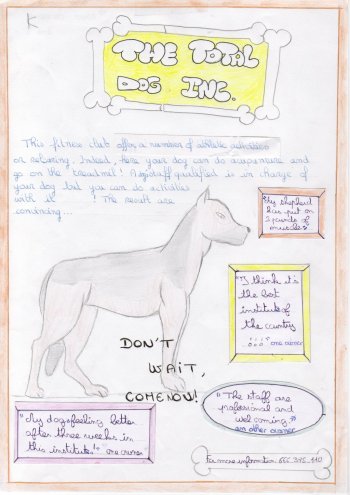 K
THE TOTAL
DOG INC.
This fitness club offers a number of athletic activities
or relaxing. Indeed, here your dog can do acupuncture and
go on the treadmill! A staff qualified is in charge of
your dog but you can do activities
with it ! The result are
convincing...
"My shepherd
has put on
3 pounds of
muscles"
"I think it's
the best
institute of
the country
..." one owner
DON'T
WAIT,
COME NOW!
"The staff are
professional and
welcoming."
an other owner
"My dog feeling better
after three weeks in
this institute!" one owner
For more information: 555.375.440